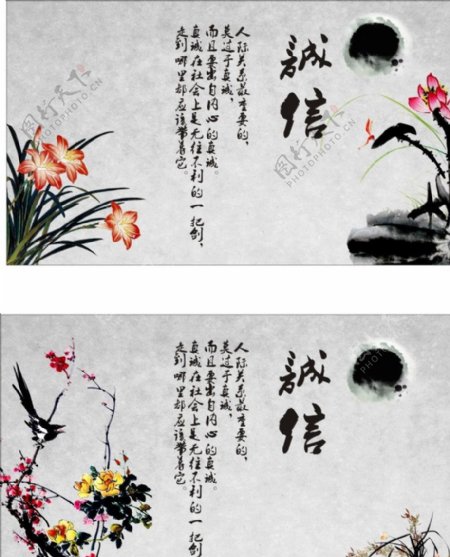 誠信
人际关系最重要的，
莫过于真诚，
而且要出自内心的真诚。
真诚在社会上是无往不利的一把剑，
走到哪里都应该带着它。
誠信
人际关系最重要的，
莫过于真诚，
而且要出自内心的真诚。
真诚在社会上是无往不利的一把剑
走到哪里都应该带着它。